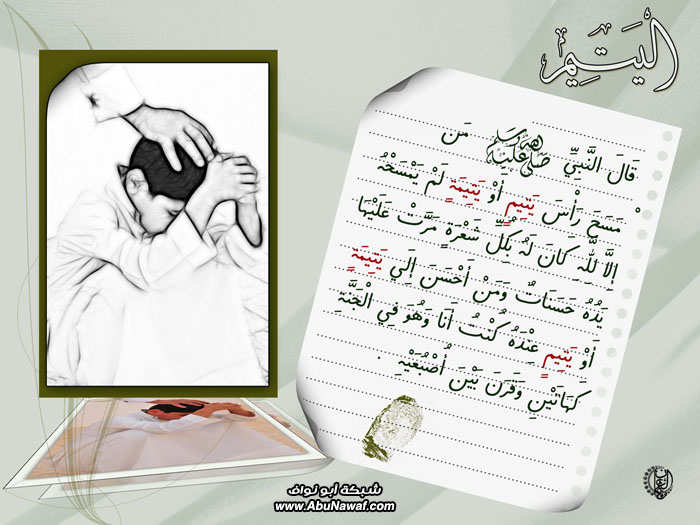 الْيَتِيمُ
قَالَ النَّبِيِّ صَلَّى اللَّهُ عَلَيْهِ وَسَلَّمَ مَن
مَسَحَ رَأْسَ يَتِيمٍ أَوْ يَتِيمَةٍ لَمْ يَمْسَحْهُ
إِلَّا لِلَّهِ كَانَ لَهُ بِكُلِّ شَعْرَةٍ مَرَّتْ عَلَيْهَا
يَدُهُ حَسَنَاتٌ وَمَنْ أَحْسَنَ إِلَي يَتِيمَةٍ
أَوْ يَتِيمٍ عِنْدَهُ كُنْتُ أَنَا وَهُوَ فِي الْجَنَّةِ
كَهَاتَيْنِ وَقَرَنَ بَيْنَ أُصْبُعَيْهِ .
شبكة أبو نواف
www.AbuNawaf.com